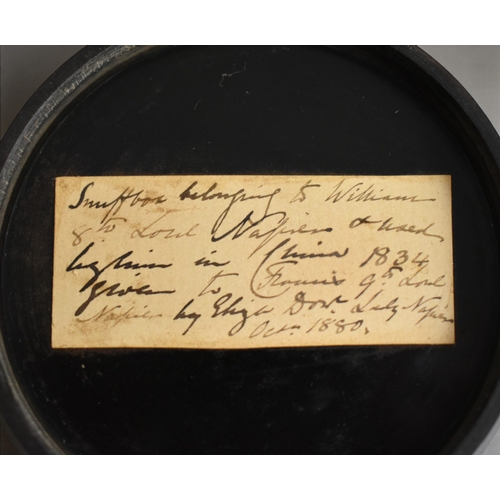 Snuffbox belonging to William
8th Lord Napier & used
by him in China 1834
given to Francis 9th Lord
Napier by Eliza Dowr. Lady Napier
Octr. 1880.